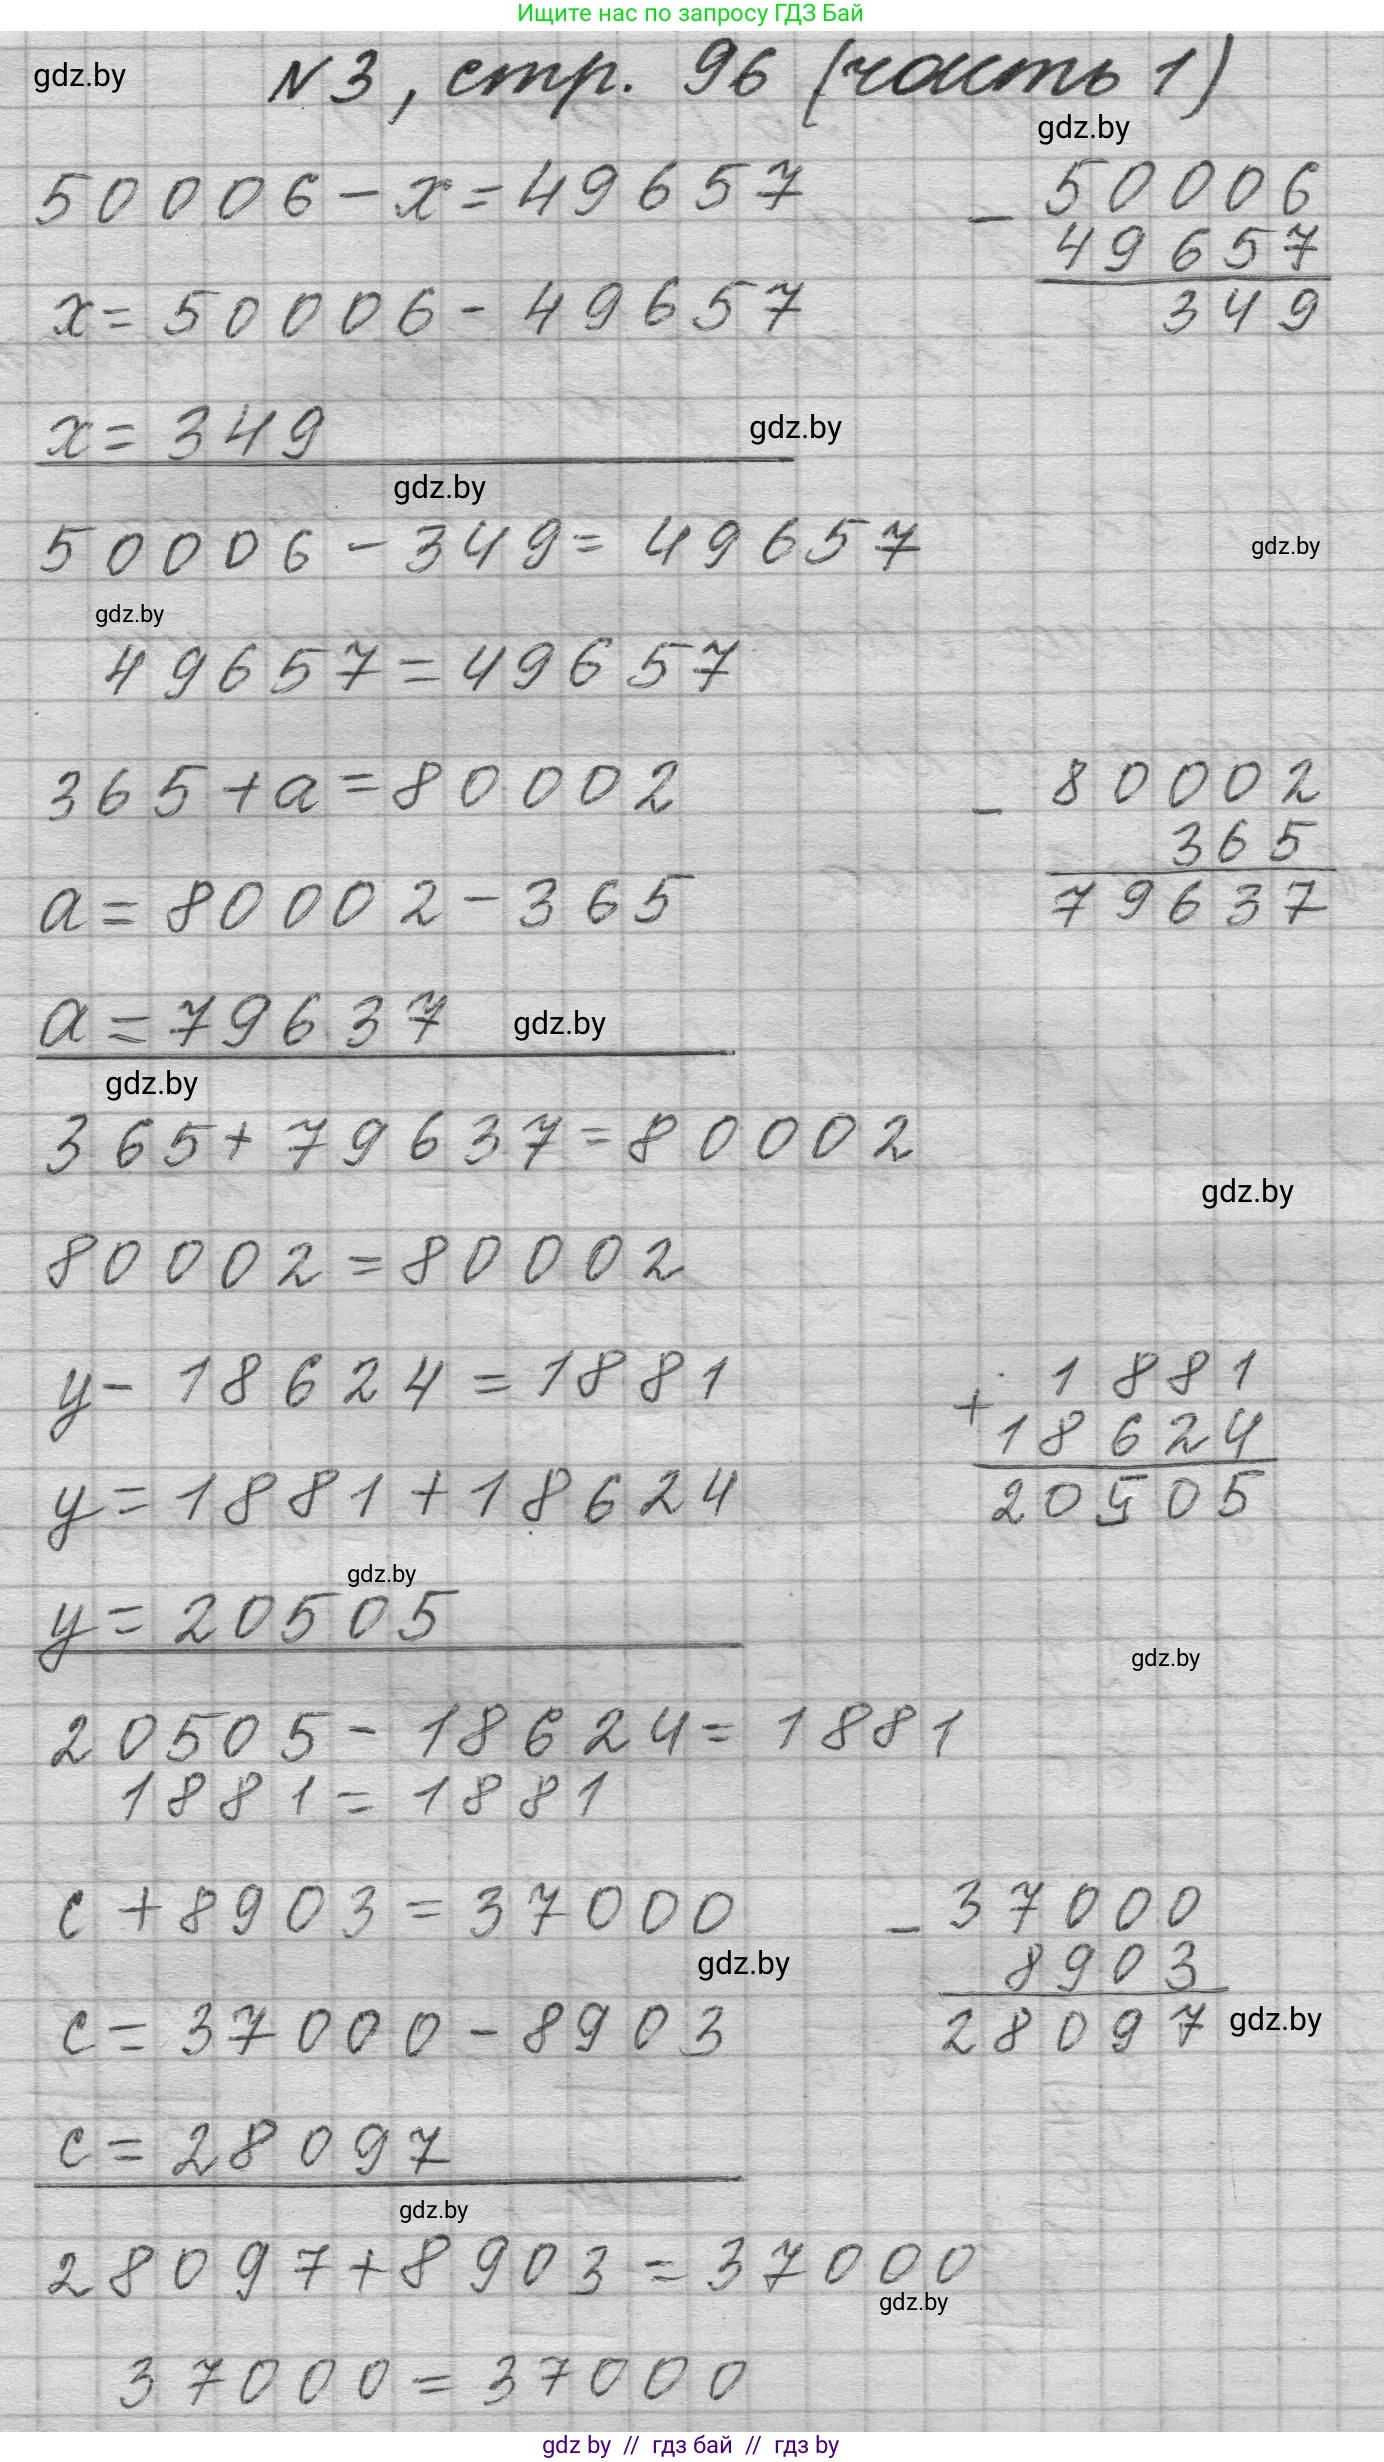 Ищите нас по запросу ГДЗ Бай
gdz.by
N 3, стр. 96 (часть 1)
gdz.by
50006 - x = 49657
x = 50006 - 49657
- 50006
49657
349
x = 349
gdz.by
gdz.by
50006 - 349 = 49657
gdz.by
gdz.by
49657 = 49657
365 + a = 80002
a = 80002 - 365
- 80002
365
79637
a = 79637
gdz.by
gdz.by
365 + 79637 = 80002
gdz.by
80002 = 80002
y - 18624 = 1881
y = 1881 + 18624
+ 1881
18624
20505
gdz.by
y = 20505
gdz.by
20505 - 18624 = 1881
1881 = 1881
c + 8903 = 37000
gdz.by
c = 37000 - 8903
- 37000
8903
28097
gdz.by
c = 28097
gdz.by
28097 + 8903 = 37000
gdz.by
37000 = 37000
gdz by // гдз бай // гдз by